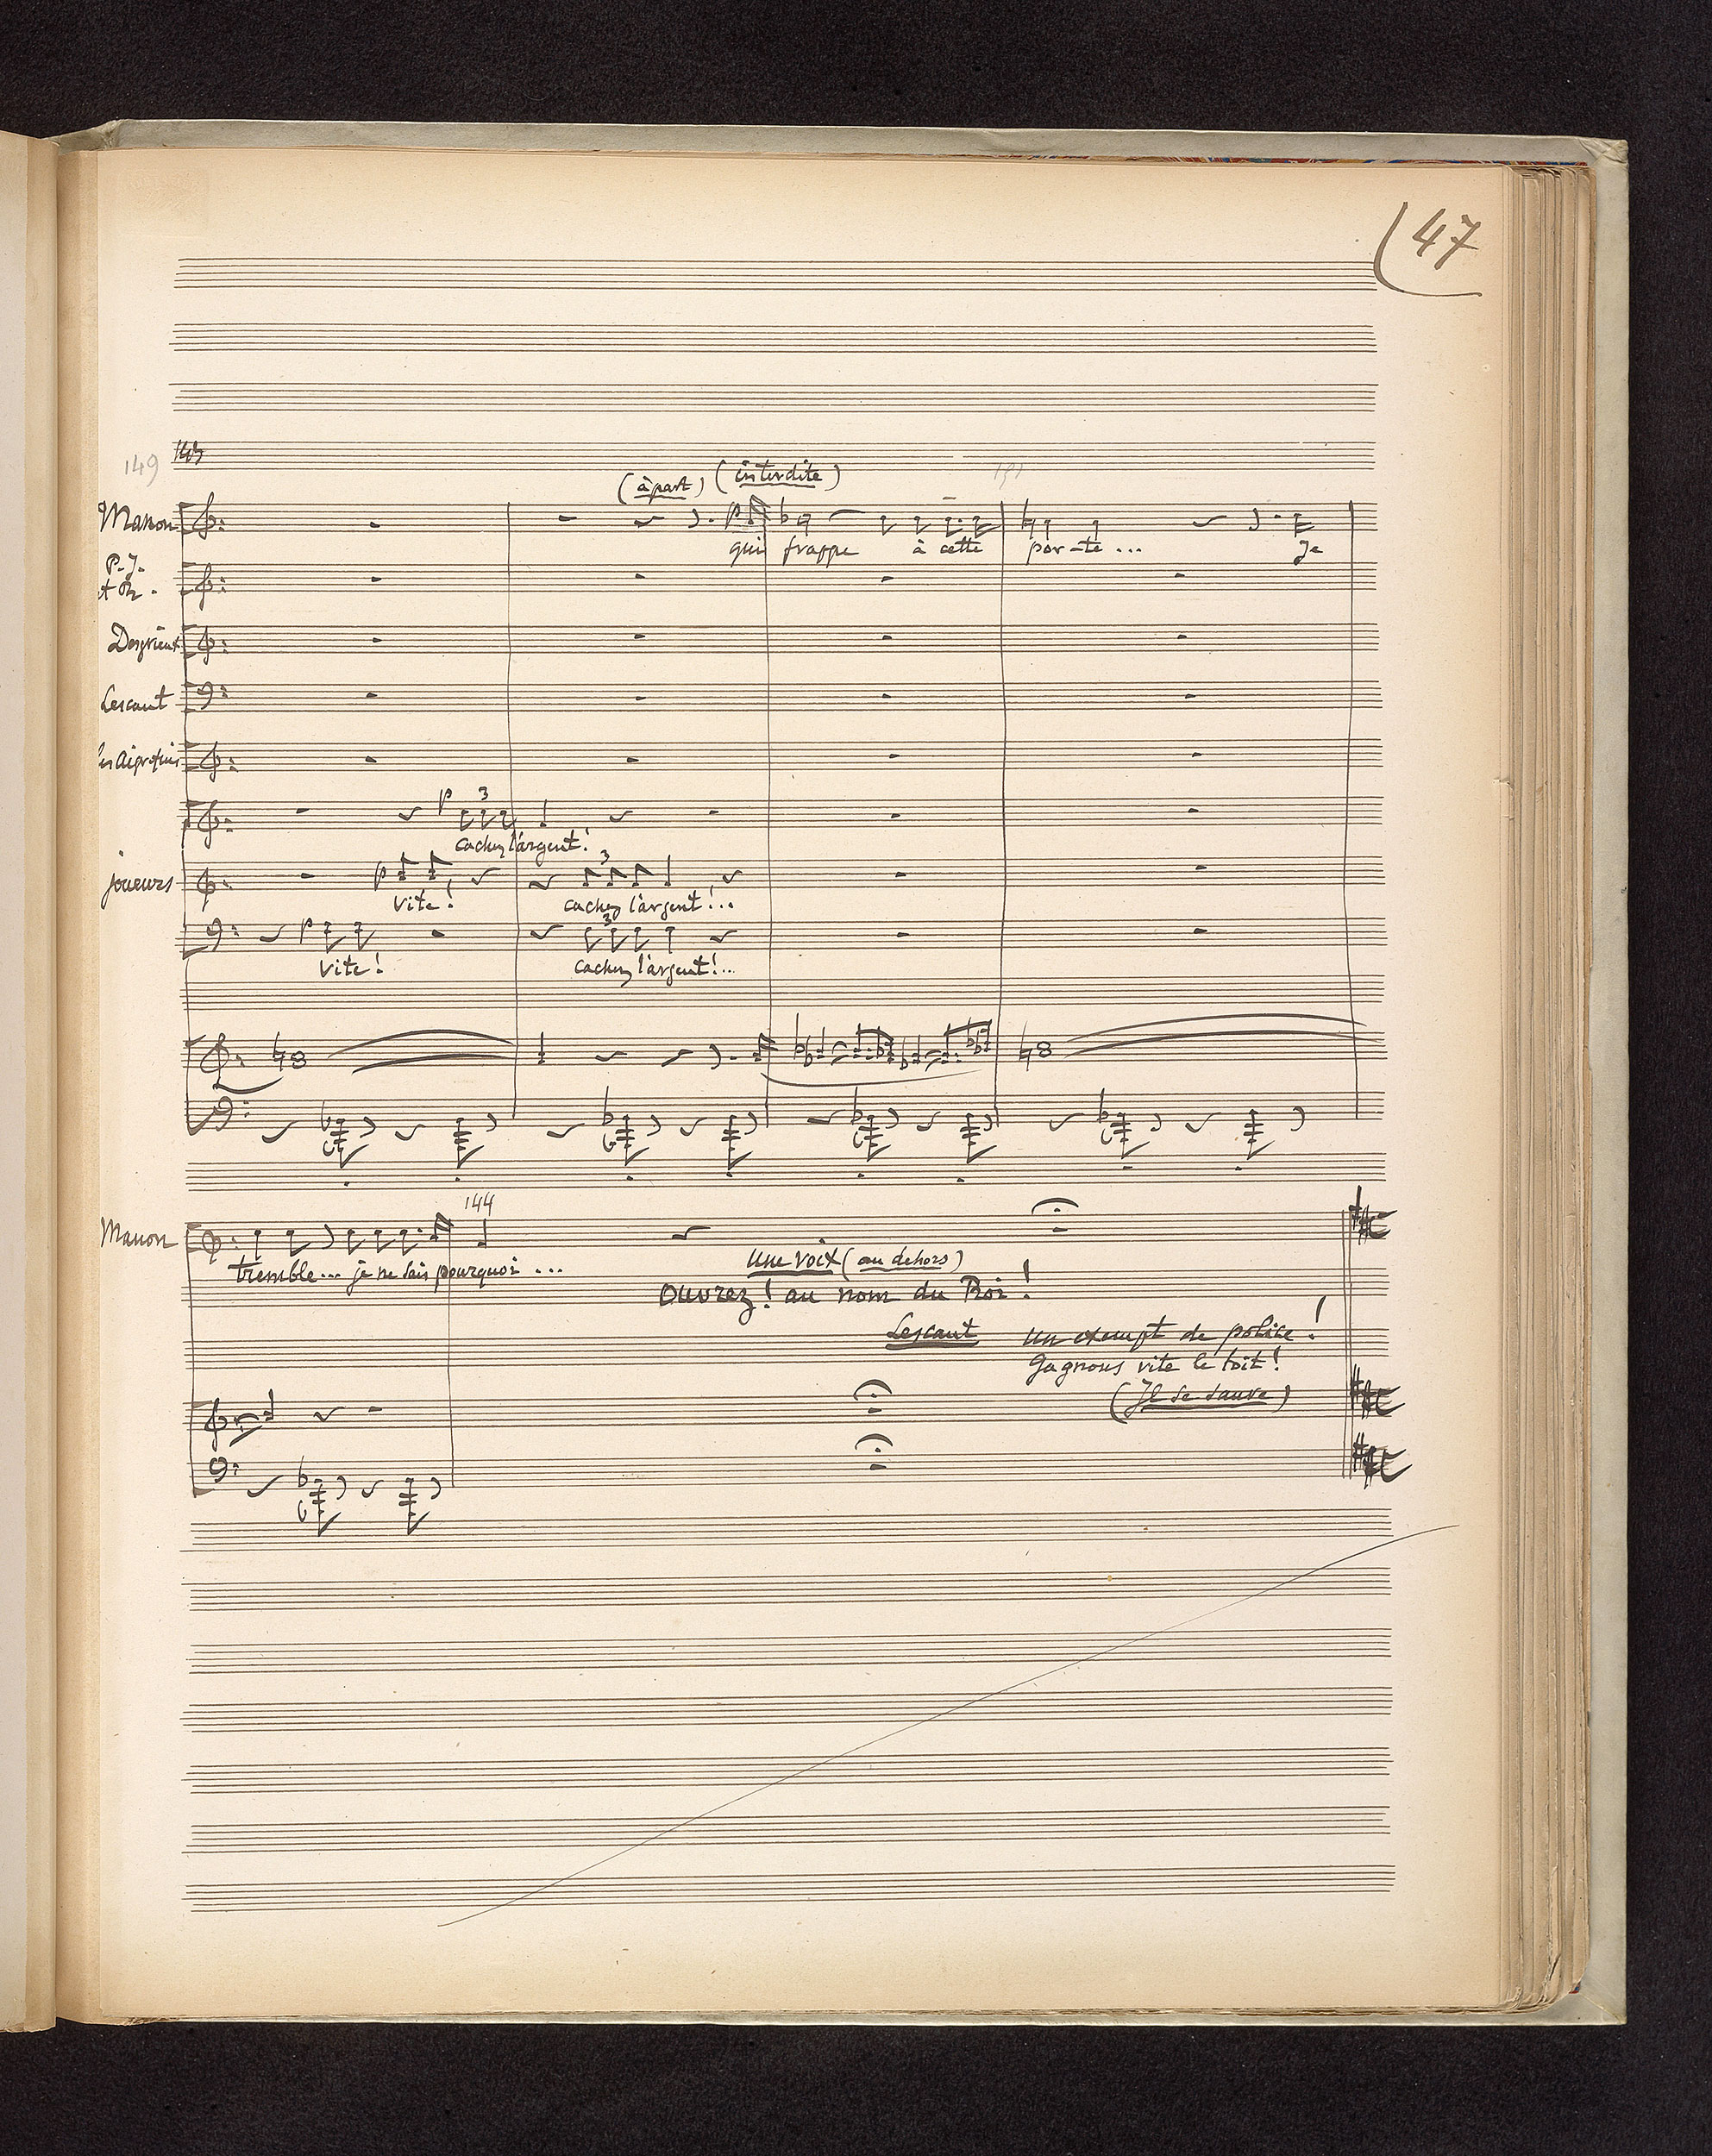 47
149
(à part) (interdite)
Manon
qui frappe à cette por-te... Je
P.J.
Desgrieux
Lescaut
les aigrefins
3
cachez l'argent!
joueurs
3
vite! cachez l'argent!...
3
vite! cachez l'argent!...
144
Manon
tremble... je ne sais pourquoi...
une voix (au dehors)
Ouvrez! au nom du Roi!
Lescaut un exempt de police!
Gagnons vite le toit!
(Il se sauve)